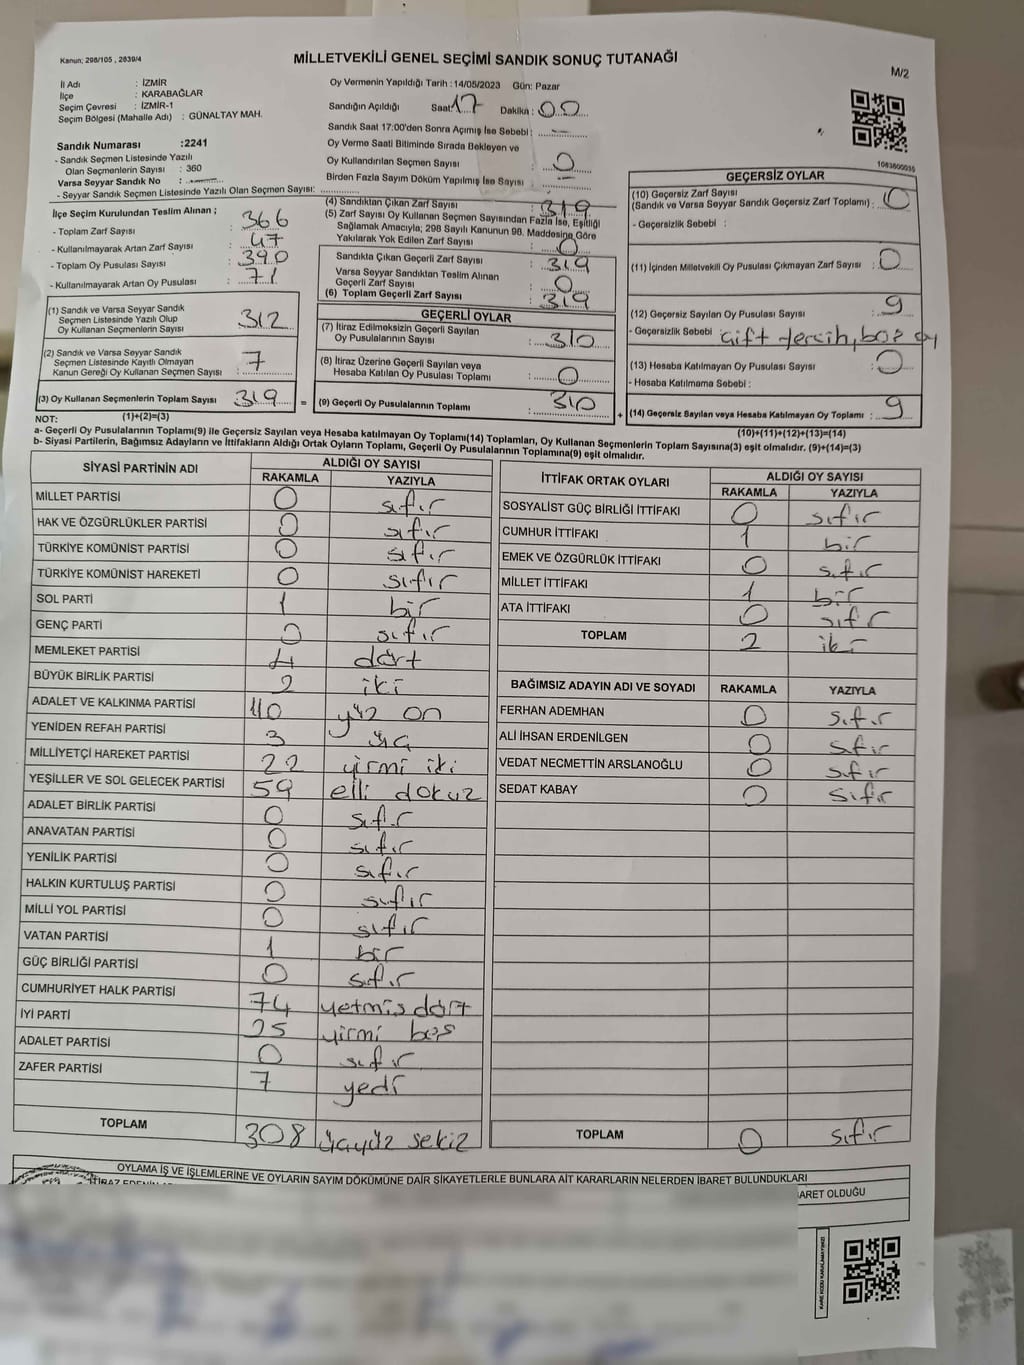 Kanun; 298/105 , 2839/4
MİLLETVEKİLİ GENEL SEÇİMİ SANDIK SONUÇ TUTANAĞI
M/2
İl Adı : İZMİR
İlçe : KARABAĞLAR
Seçim Çevresi : İZMİR-1
Seçim Bölgesi (Mahalle Adı) : GÜNALTAY MAH.
Sandık Numarası :2241
- Sandık Seçmen Listesinde Yazılı
Olan Seçmenlerin Sayısı : 360
Varsa Seyyar Sandık No :
- Seyyar Sandık Seçmen Listesinde Yazılı Olan Seçmen Sayısı:
Oy Vermenin Yapıldığı Tarih : 14/05/2023 Gün: Pazar
Sandığın Açıldığı Saat 17 Dakika : 00
Sandık Saat 17:00'den Sonra Açımış İse Sebebi : -
Oy Verme Saati Bitiminde Sırada Bekleyen ve
Oy Kullandırılan Seçmen Sayısı : 0
Birden Fazla Sayım Döküm Yapılmış İse Sayısı : -
1083600035
İlçe Seçim Kurulundan Teslim Alınan ;
- Toplam Zarf Sayısı : 366
- Kullanılmayarak Artan Zarf Sayısı : 47
- Toplam Oy Pusulası Sayısı : 390
- Kullanılmayarak Artan Oy Pusulası : 71
(1) Sandık ve Varsa Seyyar Sandık
Seçmen Listesinde Yazılı Olup
Oy Kullanan Seçmenlerin Sayısı 312
(2) Sandık ve Varsa Seyyar Sandık
Seçmen Listesinde Kayıtlı Olmayan
Kanun Gereği Oy Kullanan Seçmen Sayısı : 7
(3) Oy Kullanan Seçmenlerin Toplam Sayısı 319
(1)+(2)=(3)
(4) Sandıktan Çıkan Zarf Sayısı : 319
(5) Zarf Sayısı Oy Kullanan Seçmen Sayısından Fazla İse, Eşitliği
Sağlamak Amacıyla; 298 Sayılı Kanunun 98. Maddesine Göre
Yakılarak Yok Edilen Zarf Sayısı : 0
Sandıkta Çıkan Geçerli Zarf Sayısı : 319
Varsa Seyyar Sandıktan Teslim Alınan
Geçerli Zarf Sayısı : 0
(6) Toplam Geçerli Zarf Sayısı : 319
GEÇERLİ OYLAR
(7) İtiraz Edilmeksizin Geçerli Sayılan
Oy Pusulalarının Sayısı : 310
(8) İtiraz Üzerine Geçerli Sayılan veya
Hesaba Katılan Oy Pusulası Toplamı : 0
= (9) Geçerli Oy Pusulalarının Toplamı : 310
GEÇERSİZ OYLAR
(10) Geçersiz Zarf Sayısı
(Sandık ve Varsa Seyyar Sandık Geçersiz Zarf Toplamı) : 0
- Geçersizlik Sebebi :
(11) İçinden Milletvekili Oy Pusulası Çıkmayan Zarf Sayısı : 0
(12) Geçersiz Sayılan Oy Pusulası Sayısı : 9
- Geçersizlik Sebebi : Çift tercih, boş oy
(13) Hesaba Katılmayan Oy Pusulası Sayısı : 0
- Hesaba Katılmama Sebebi :
+ (14) Geçersiz Sayılan veya Hesaba Katılmayan Oy Toplamı : 9
(10)+(11)+(12)+(13)=(14)
NOT:
a- Geçerli Oy Pusulalarının Toplamı(9) ile Geçersiz Sayılan veya Hesaba katılmayan Oy Toplamı(14) Toplamları, Oy Kullanan Seçmenlerin Toplam Sayısına(3) eşit olmalıdır. (9)+(14)=(3)
b- Siyasi Partilerin, Bağımsız Adayların ve İttifakların Aldığı Ortak Oyların Toplamı, Geçerli Oy Pusulalarının Toplamına(9) eşit olmalıdır.
SİYASİ PARTİNİN ADI ALDIĞI OY SAYISI
RAKAMLA YAZIYLA
MİLLET PARTİSİ 0 sıfır
HAK VE ÖZGÜRLÜKLER PARTİSİ 0 sıfır
TÜRKİYE KOMÜNİST PARTİSİ 0 sıfır
TÜRKİYE KOMÜNİST HAREKETİ 0 sıfır
SOL PARTİ 1 bir
GENÇ PARTİ 0 sıfır
MEMLEKET PARTİSİ 4 dört
BÜYÜK BİRLİK PARTİSİ 2 iki
ADALET VE KALKINMA PARTİSİ 110 yüz on
YENİDEN REFAH PARTİSİ 3 üç
MİLLİYETÇİ HAREKET PARTİSİ 22 yirmi iki
YEŞİLLER VE SOL GELECEK PARTİSİ 59 elli dokuz
ADALET BİRLİK PARTİSİ 0 sıfır
ANAVATAN PARTİSİ 0 sıfır
YENİLİK PARTİSİ 0 sıfır
HALKIN KURTULUŞ PARTİSİ 0 sıfır
MİLLİ YOL PARTİSİ 0 sıfır
VATAN PARTİSİ 1 bir
GÜÇ BİRLİĞİ PARTİSİ 0 sıfır
CUMHURİYET HALK PARTİSİ 74 yetmiş dört
İYİ PARTİ 25 yirmi beş
ADALET PARTİSİ 0 sıfır
ZAFER PARTİSİ 7 yedi
TOPLAM 308 üçyüz sekiz
İTTİFAK ORTAK OYLARI ALDIĞI OY SAYISI
RAKAMLA YAZIYLA
SOSYALİST GÜÇ BİRLİĞİ İTTİFAKI 0 sıfır
CUMHUR İTTİFAKI 1 bir
EMEK VE ÖZGÜRLÜK İTTİFAKI 0 sıfır
MİLLET İTTİFAKI 1 bir
ATA İTTİFAKI 0 sıfır
TOPLAM 2 iki
BAĞIMSIZ ADAYIN ADI VE SOYADI RAKAMLA YAZIYLA
FERHAN ADEMHAN 0 sıfır
ALİ İHSAN ERDENİLGEN 0 sıfır
VEDAT NECMETTİN ARSLANOĞLU 0 sıfır
SEDAT KABAY 0 sıfır
TOPLAM 0 sıfır
OYLAMA İŞ VE İŞLEMLERİNE VE OYLARIN SAYIM DÖKÜMÜNE DAİR ŞİKAYETLERLE BUNLARA AİT KARARLARIN NELERDEN İBARET BULUNDUKLARI
OLDUĞU